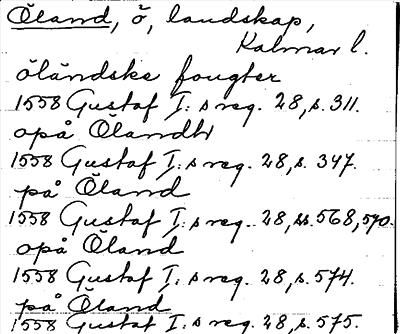 Öland, ö, landskap,
Kalmar l.
öländske fougter
1558 Gustaf I:s reg. 28, s. 311.
opå Ölandh
1558 Gustaf I:s reg. 28, s. 347.
på Öland
1558 Gustaf I:s reg. 28, ss. 568, 570.
opå Öland
1558 Gustaf I:s reg. 28, s. 574.
på Öland
1558 Gustaf I:s reg. 28, s. 575.